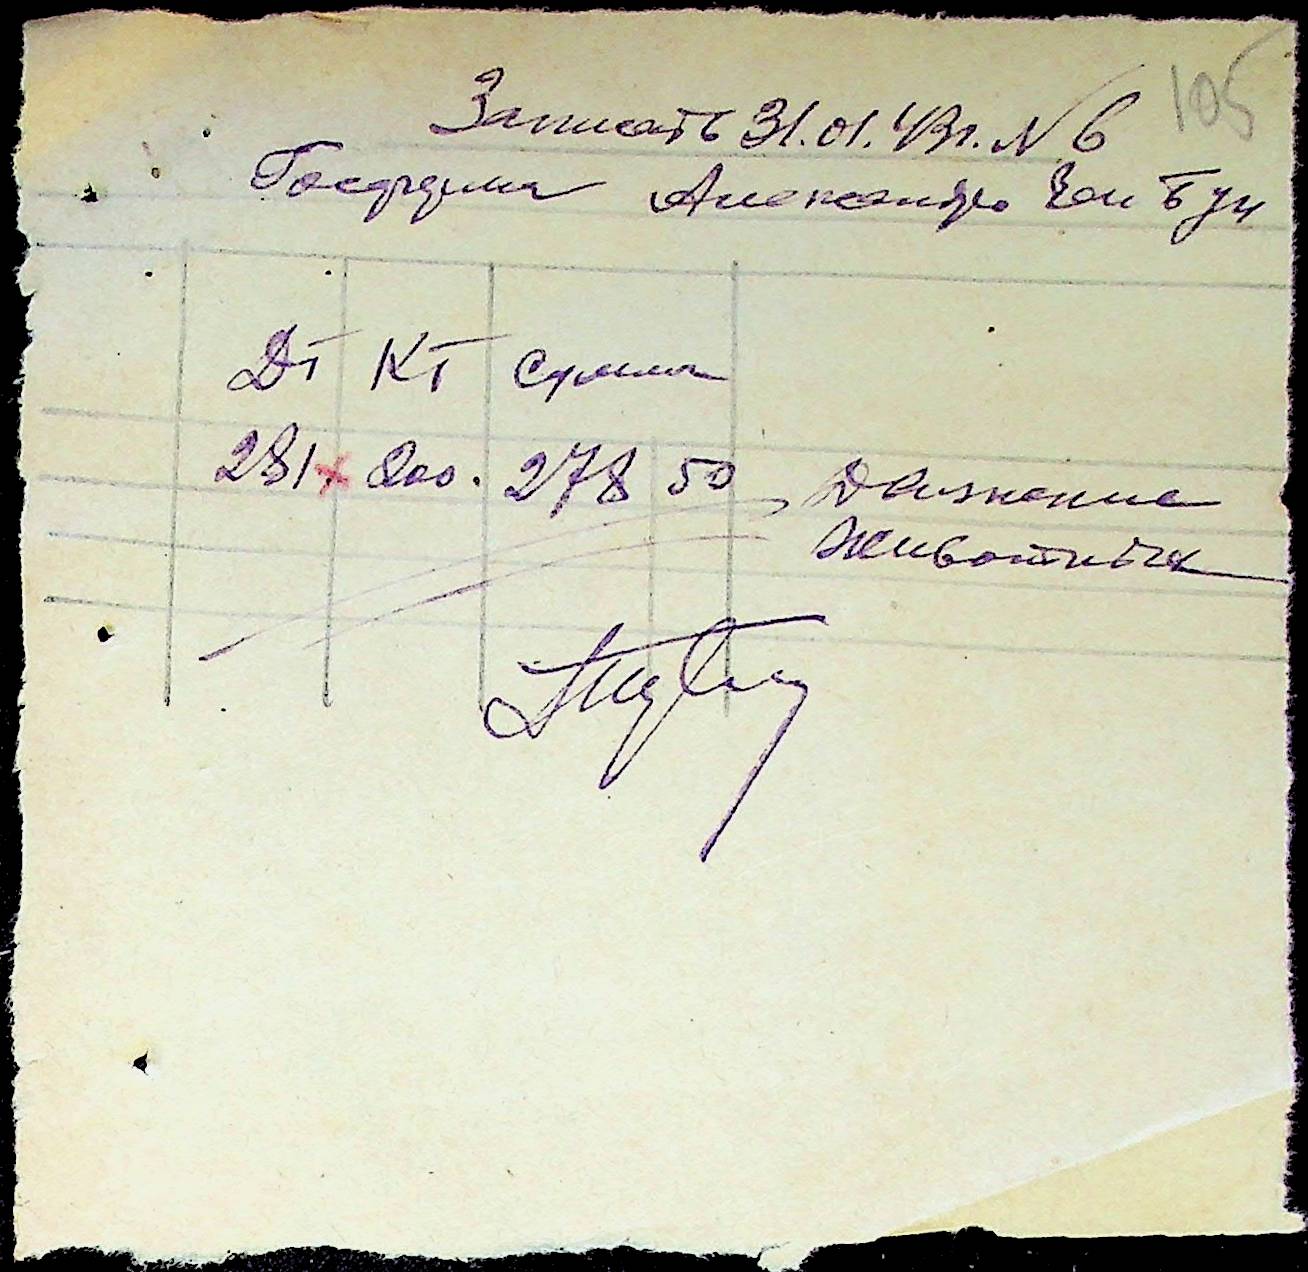 105
Записать 31.01.43г. № 6
Госферма Александро
Дт Кт Сумма
281 × 200. 278 50 Движение
животных